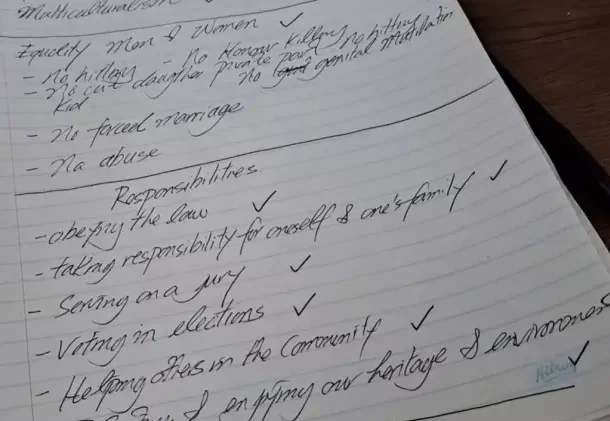 Multiculturalism ✓
Equality Men & Women ✓
- no hitting - no Honour killing
- no cut daughter private part no hitting
kid no genital mutilation
- No forced marriage
- Na abuse
Responsibilities.
- obeying the law ✓
- taking responsibility for oneself & one's family ✓
- Serving on a jury ✓
- Voting in elections ✓
- Helping others in the Community ✓
& enjoying our heritage & environment ✓